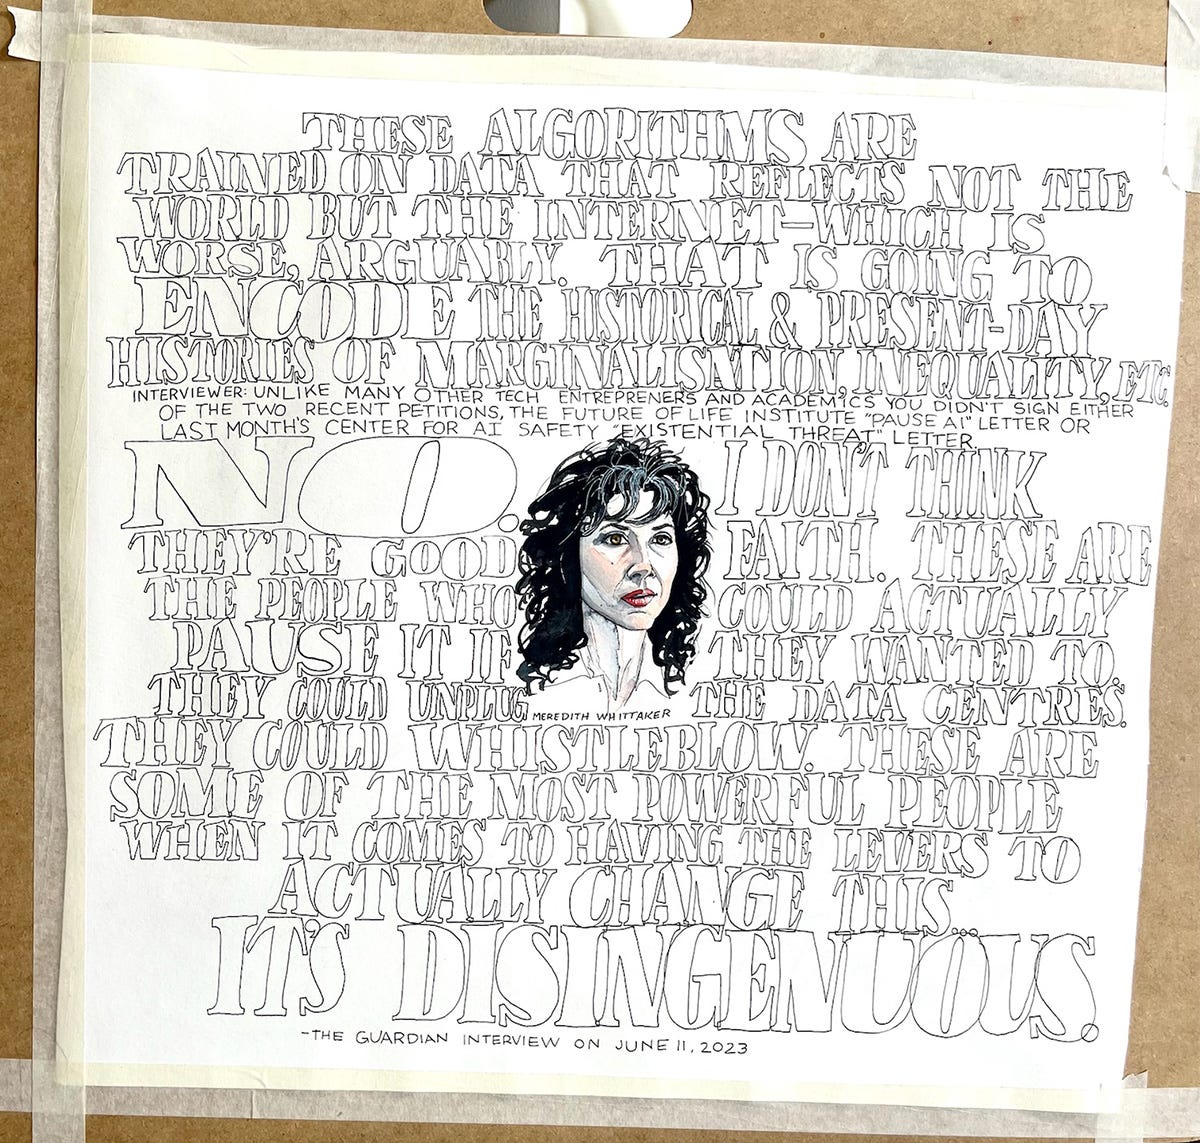 THESE ALGORITHMS ARE
TRAINED ON DATA THAT REFLECTS NOT THE
WORLD BUT THE INTERNET—WHICH IS
WORSE, ARGUABLY. THAT IS GOING TO
ENCODE THE HISTORICAL & PRESENT-DAY
HISTORIES OF MARGINALISATION, INEQUALITY, ETC.
INTERVIEWER: UNLIKE MANY OTHER TECH ENTREPRENERS AND ACADEMICS YOU DIDN'T SIGN EITHER
OF THE TWO RECENT PETITIONS, THE FUTURE OF LIFE INSTITUTE "PAUSE AI" LETTER OR
LAST MONTH'S CENTER FOR AI SAFETY "EXISTENTIAL THREAT" LETTER.
NO. I DON'T THINK
THEY'RE GOOD FAITH. THESE ARE
THE PEOPLE WHO COULD ACTUALLY
PAUSE IT IF THEY WANTED TO.
THEY COULD UNPLUG THE DATA CENTRES.
MEREDITH WHITTAKER
THEY COULD WHISTLEBLOW. THESE ARE
SOME OF THE MOST POWERFUL PEOPLE
WHEN IT COMES TO HAVING THE LEVERS TO
ACTUALLY CHANGE THIS...
IT'S DISINGENUOUS.
-THE GUARDIAN INTERVIEW ON JUNE 11, 2023